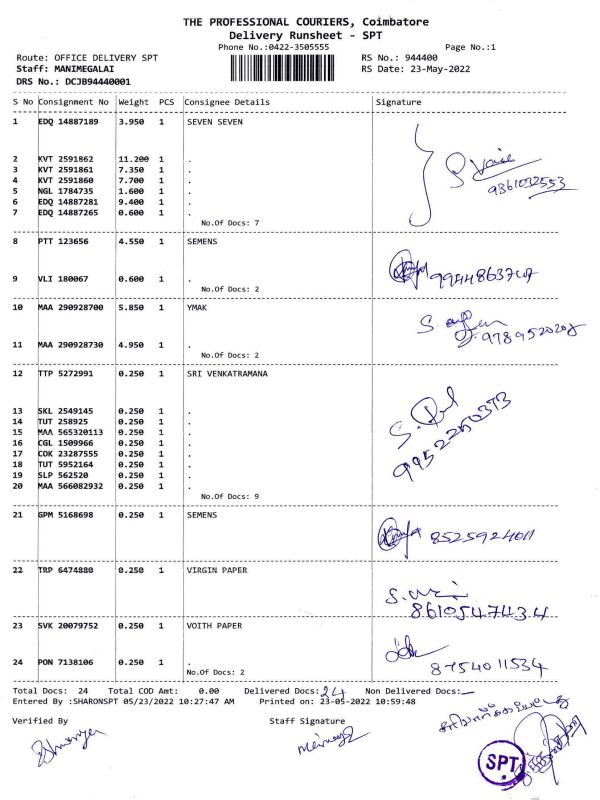 THE PROFESSIONAL COURIERS, Coimbatore
Delivery Runsheet - SPT
Phone No.:0422-3505555 Page No.:1
Route: OFFICE DELIVERY SPT RS No.: 944400
Staff: MANIMEGALAI RS Date: 23-May-2022
DRS No.: DCJB94440001
S No Consignment No Weight PCS Consignee Details Signature
1 EDQ 14887189 3.950 1 SEVEN SEVEN
2 KVT 2591862 11.200 1 .
3 KVT 2591861 7.350 1 .
4 KVT 2591860 7.700 1 .
5 NGL 1784735 1.600 1 .
9361032553
6 EDQ 14887281 9.400 1 .
7 EDQ 14887265 0.600 1 .
No.Of Docs: 7
8 PTT 123656 4.550 1 SEMENS
9 VLI 180067 0.600 1 .
No.Of Docs: 2
10 MAA 290928700 5.850 1 YMAK
11 MAA 290928730 4.950 1 .
No.Of Docs: 2
12 TTP 5272991 0.250 1 SRI VENKATRAMANA
13 SKL 2549145 0.250 1 .
14 TUT 258925 0.250 1 .
15 MAA 565320113 0.250 1 .
16 CGL 1509966 0.250 1 .
17 COK 23287555 0.250 1 .
18 TUT 5952164 0.250 1 .
19 SLP 562520 0.250 1 .
20 MAA 566082932 0.250 1 .
No.Of Docs: 9
21 GPM 5168698 0.250 1 SEMENS
8525924011
22 TRP 6474880 0.250 1 VIRGIN PAPER
8610547434
23 SVK 20079752 0.250 1 VOITH PAPER
24 PON 7138106 0.250 1 .
8754011534
No.Of Docs: 2
Total Docs: 24 Total COD Amt: 0.00 Delivered Docs: 24 Non Delivered Docs:-
Entered By :SHARONSPT 05/23/2022 10:27:47 AM Printed on: 23-05-2022 10:59:48
Verified By Staff Signature
SPT